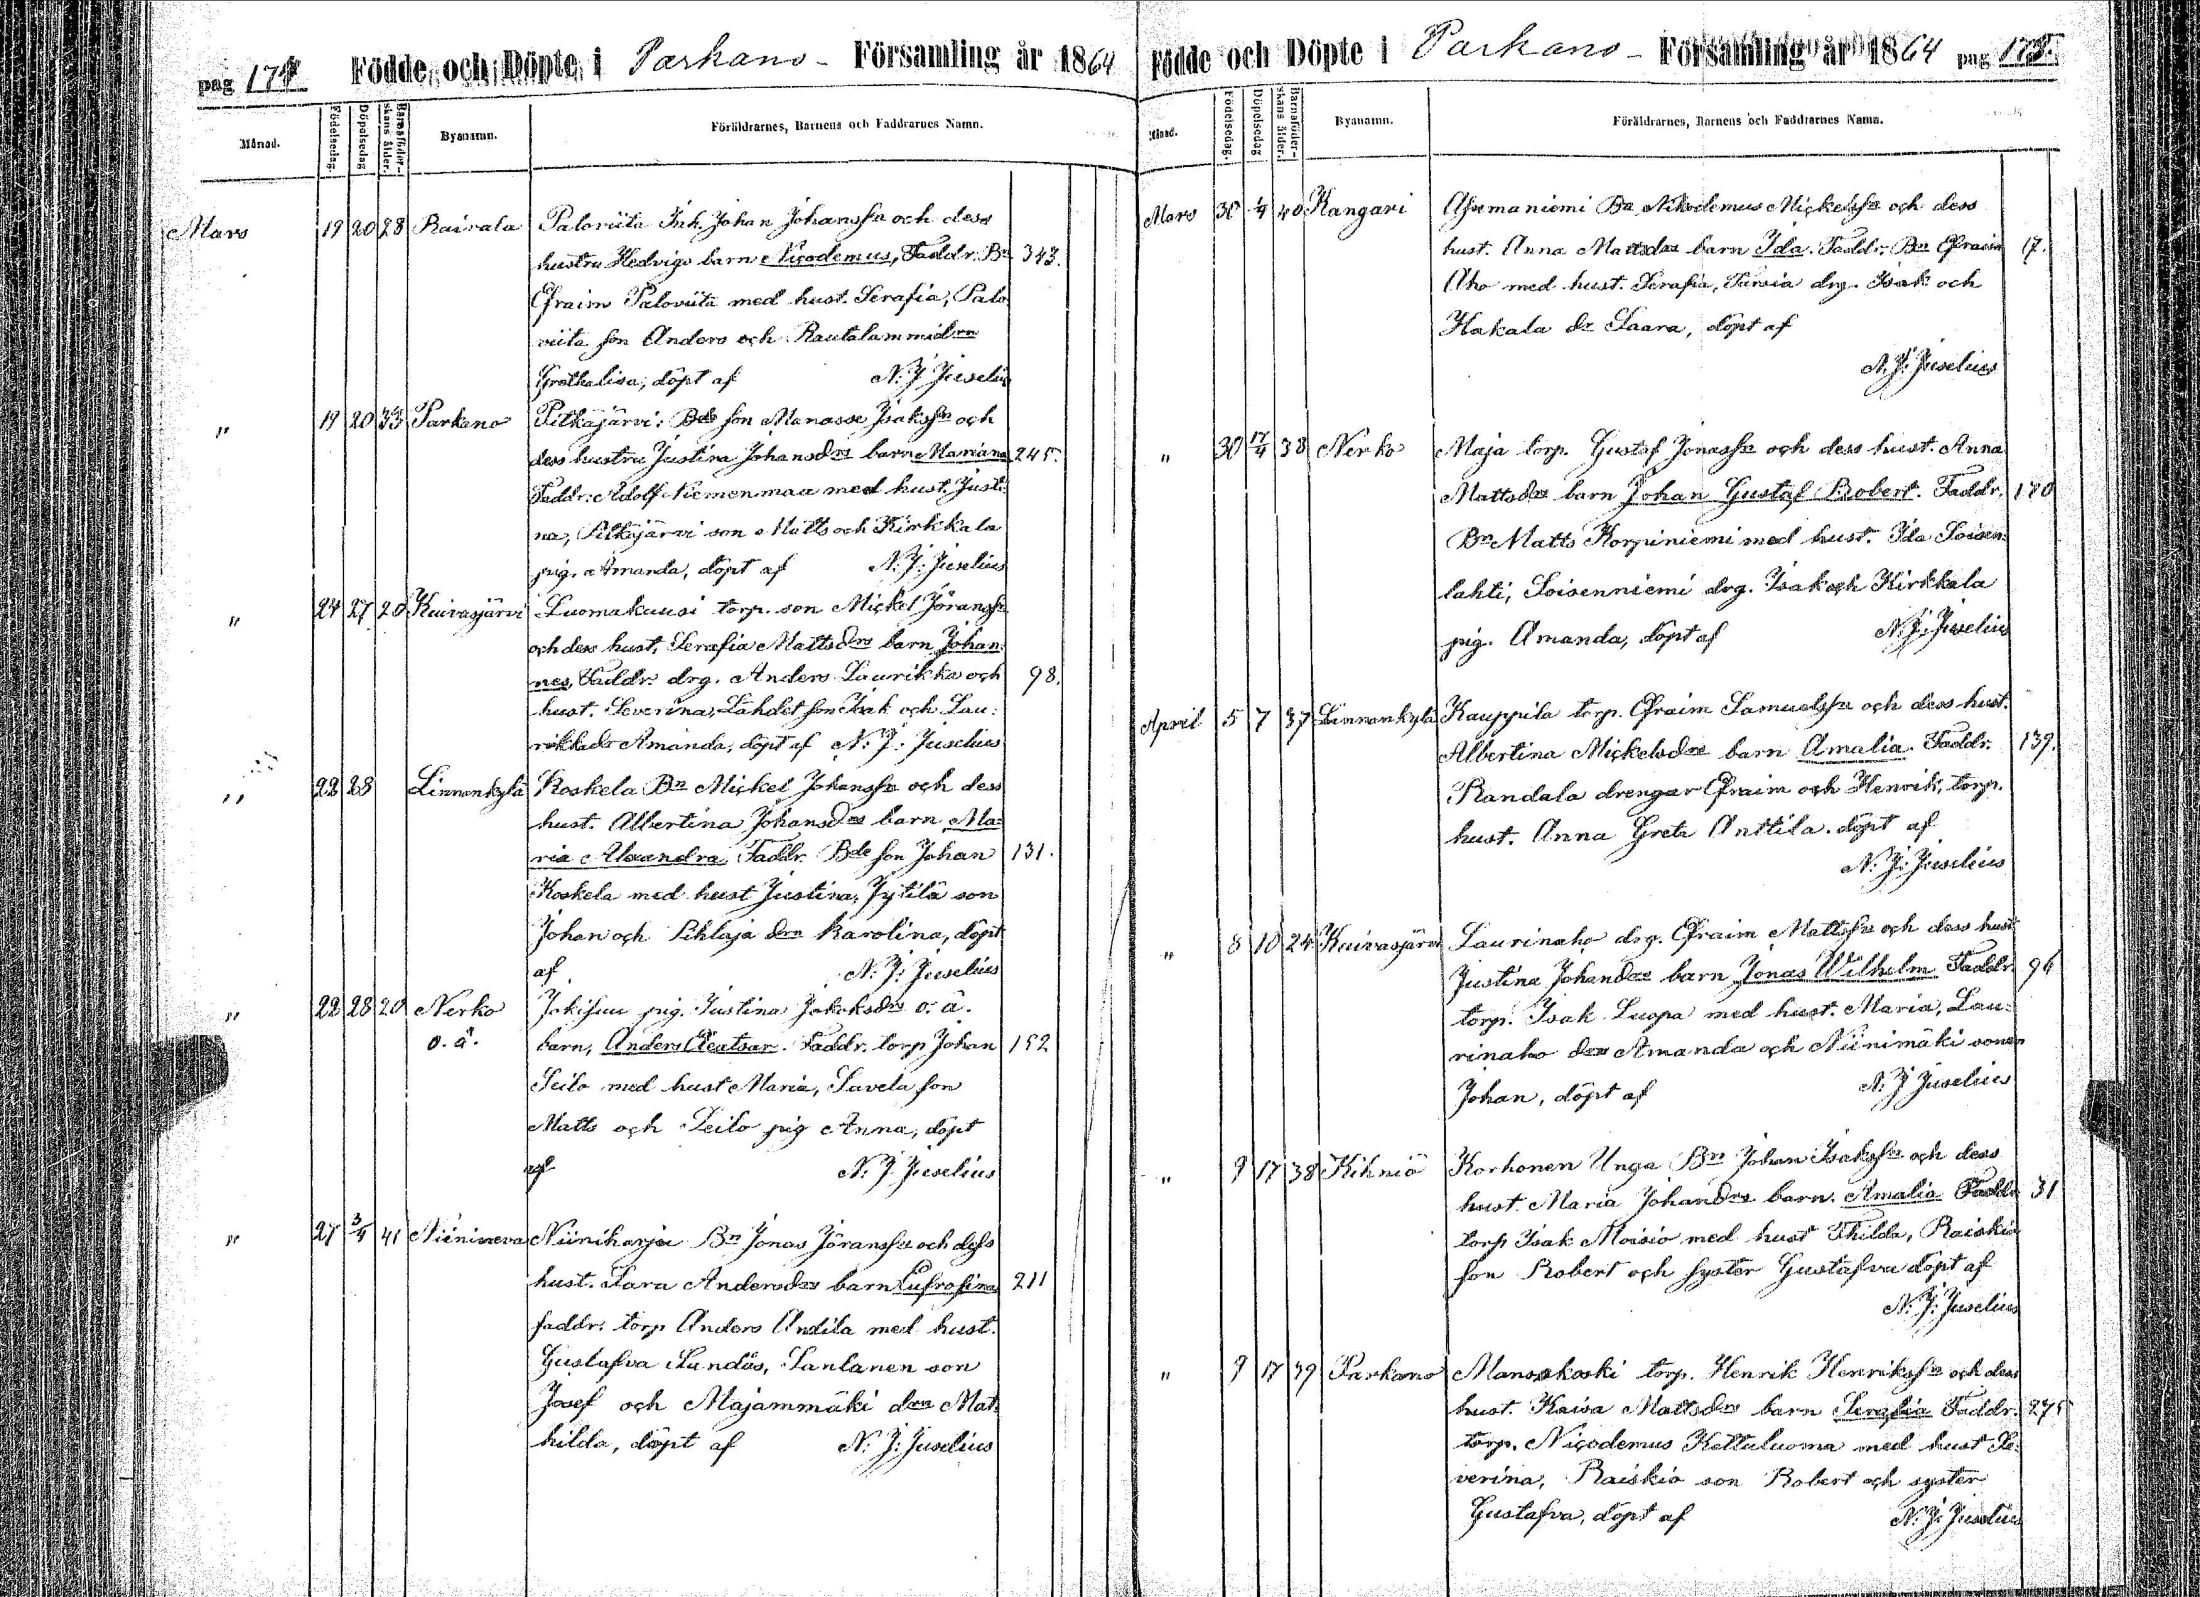 pag 174. Födde och Döpte i Parkano Församling år 1864
Månad. Födelsedag. Döpelsedag Barnaföderskans ålder. Byanamn. Föräldrarnes, Barnens och Faddrarnes Namn.
Mars 19 20 28 Rairala Paloviita Inh. Johan Johanss:n och dess
hustru Hedvigs barn Nicodemus, Faddr. Bn 343.
Efraim Paloviita med hust. Serafia, Palo
viita son Anders och Rautalammi drn
Grethalisa, döpt af N. J. Juselius
" 19 20 33 Parkano Pitkäjärvi: Bde son Manasse Isakss:n och
dess hustru Justina Johansdrs barn Mariana 245.
Faddr. Adolf Niemenmaa med hust. Justi:
na, Pitkäjärvi son Matts och Kirkkala
pig. Amanda, döpt af N. J. Juselius
" 24 27 20 Kuivasjärvi Luomakuusi torp. son Mickel Jöranss:n
och dess hust. Serafia Mattsdrs barn Johan:
nes, Faddr. drg. Anders Laurikka och 98.
hust. Severina, Lähdet son Isak och Lau:
rikka dr Amanda, döpt af N. J: Juselius
" 22 28 Linnankylä Koskela Bn Mickel Johanss:n och dess
hust. Albertina Johansdrs barn Ma:
ria Alexandra, Faddr. Bde son Johan 131.
Koskela med hust Justina, Jytilä son
Johan och Pihlaja drn Karolina, döpt
af N. J: Juselius
" 22 28 20 Nerko Jokisuu pig. Justina Jakobsdrs o. ä.
o. ä. barn, Anders. Faddr. torp Johan 152
Seilo med hust Maria, Savela son
Matts och Seilo pig Anna, döpt
af N. J Juselius
" 27 3/4 41 Niinineva Niiniharja Bn Jonas Jöranss:n och dess
hust. Sara Andersdrs barn Eufrosina 211
faddr. torp Anders Andila med hust.
Gustafva Sundäs, Santanen son
Josef och Majammäki drn Mat:
hilda, döpt af N. J: Juselius
Födde och Döpte i Parkano Församling år 1864 pag 175.
Månad. Födelsedag. Döpelsedag Barnaföderskans ålder. Byanamn. Föräldrarnes, Barnens och Faddrarnes Namn.
Mars 30 40 Kangari Bn Nikodemus Mickelss:n och dess
hust. Anna Mattsdrs barn Ida. Faddr. Bn Efraim 17.
Aho med hust. Serafia, drg. Isak och
Hakala dr Saara, döpt af
N. J: Juselius
" 30 17/4 38 Nerko Maja torp. Gustaf Jonass:n och dess hust. Anna
Mattsdrs barn Johan Gustaf Robert. Faddr. 170
Bn Matts Korpiniemi med hust. Ida Soisen:
lahti, Soisenniemi drg. Isak och Kirkkala
pig. Amanda, döpt af N. J: Juselius
April 5 7 37 Linnankylä Kauppila torp. Efraim Samuelss:n och dess hust.
Albertina Mickelsdrs barn Amalia. Faddr. 139.
Randala drengar Efraim och Henrik, torp.
hust. Anna Greta Anttila. döpt af
N. J: Juselius
" 8 10 24 Kuivasjärvi Laurinaho drg. Efraim Mattss:n och dess hust
Justina Johansdrs barn Jonas Wilhelm Faddr. 96
torp. Isak Luopa med hust. Maria, Lau:
rinaho drn Amanda och Niinimäki sonen
Johan, döpt af N. J Juselius
" 9 17 38 Kihniö Korhonen Unga Bn Johan Isakss:n och dess
hust. Maria Johansdrs barn. Amalia Faddr 31
torp Isak Moisio med hust Thilda, Raiskio
son Robert och syster Gustafva döpt af
N. J: Juselius
" 9 17 39 Parkano Mansokoski torp. Henrik Henrikss:n och dess
hust. Kaisa Mattsdrs barn Serafia Faddr. 275
torp. Nicodemus Kettuluoma med hust Se:
verina, Raiskio son Robert och syster
Gustafva, döpt af N. J: Juselius